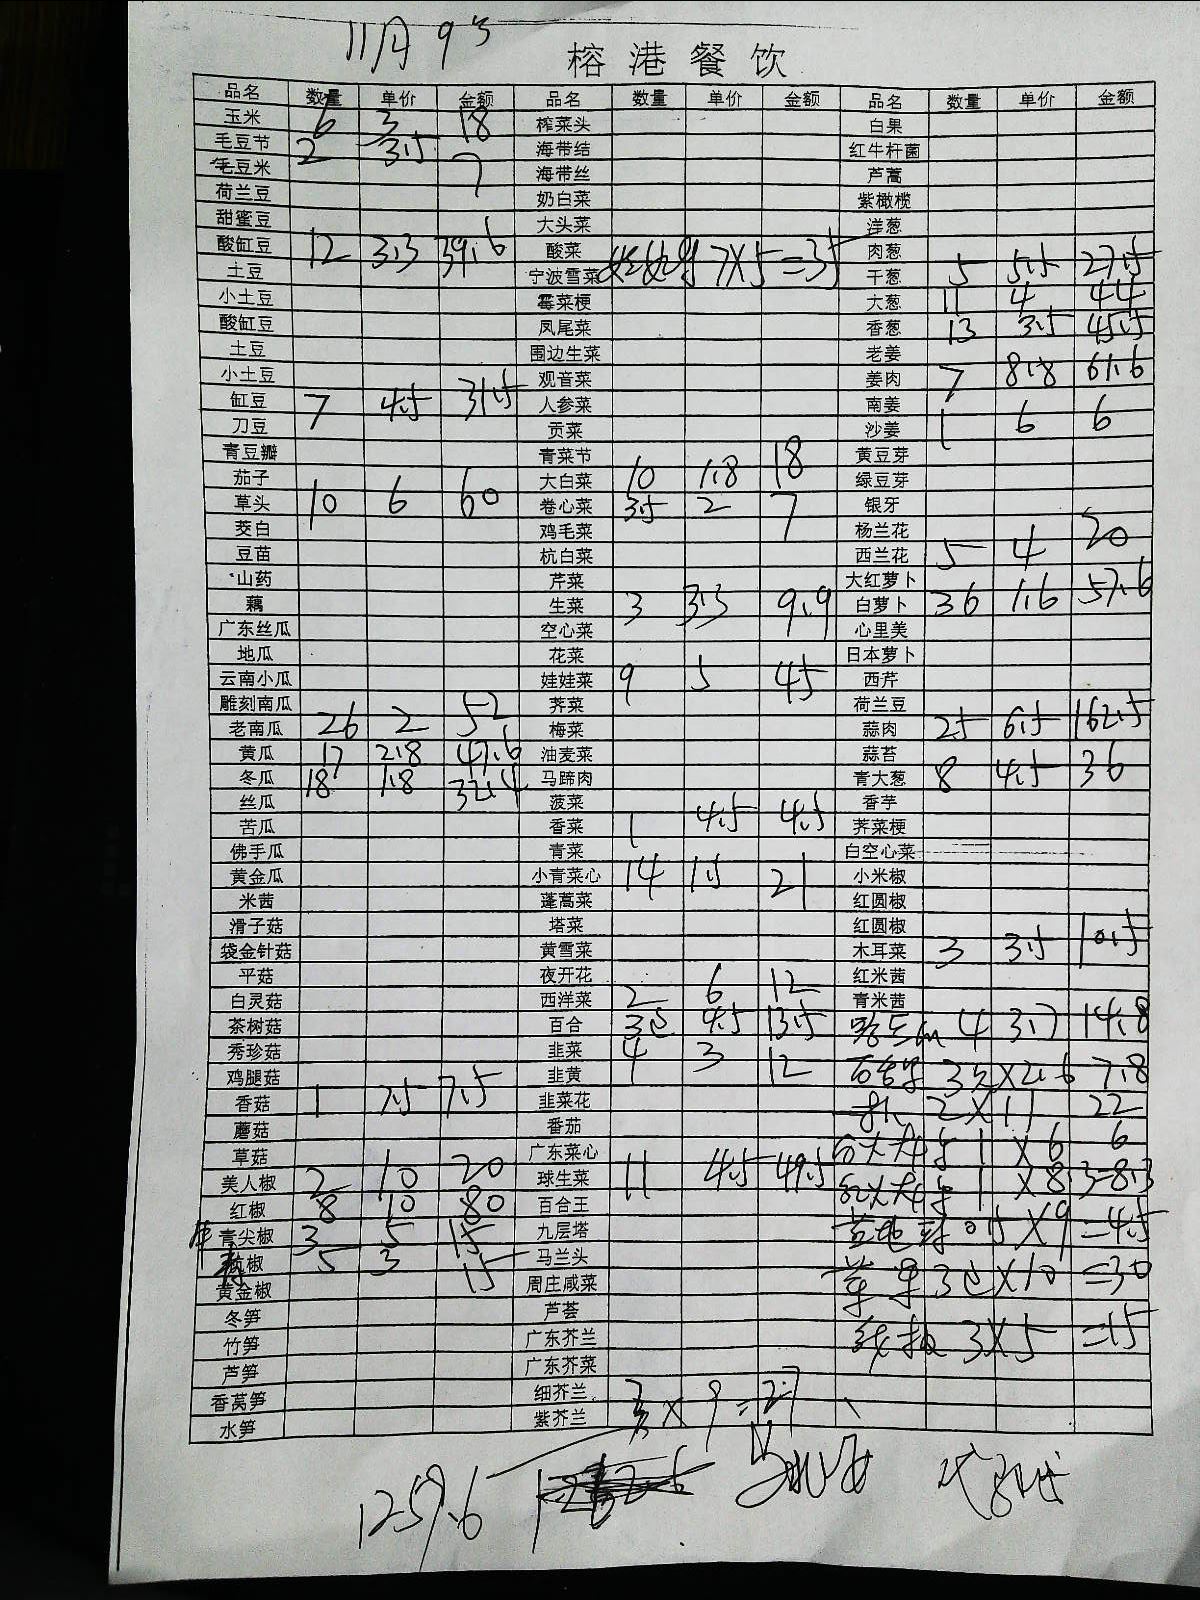 11月9号
榕港餐饮
品名 数量 单价 金额 品名 数量 单价 金额 品名 数量 单价 金额
玉米 6 3 18 榨菜头 白果
毛豆节 2 3.5 7 海带结 红牛杆菌
毛豆米 海带丝 芦蒿
荷兰豆 奶白菜 紫橄榄
甜蜜豆 大头菜 洋葱
酸缸豆 12 3.3 39.6 酸菜 7X5=35 肉葱
土豆 宁波雪菜 干葱 5 5.5 27.5
小土豆 霉菜梗 大葱 11 4 44
酸缸豆 凤尾菜 香葱 13 3.5 45.5
土豆 围边生菜 老姜
小土豆 观音菜 姜肉 7 8.8 61.6
缸豆 7 4.5 31.5 人参菜 南姜
刀豆 贡菜 沙姜 1 6 6
青豆瓣 青菜节 黄豆芽
茄子 大白菜 10 1.8 18 绿豆芽
草头 10 6 60 卷心菜 3.5 2 7 银牙
茭白 鸡毛菜 杨兰花
豆苗 杭白菜 西兰花 5 4 20
山药 芹菜 大红萝卜
藕 生菜 3 3.3 9.9 白萝卜 36 1.6 57.6
广东丝瓜 空心菜 心里美
地瓜 花菜 日本萝卜
云南小瓜 娃娃菜 9 5 45 西芹
雕刻南瓜 荠菜 荷兰豆
老南瓜 26 2 52 梅菜 蒜肉 25 6.5 162.5
黄瓜 17 2.8 47.6 油麦菜 蒜苔
冬瓜 18 1.8 32.4 马蹄肉 青大葱 8 4.5 36
丝瓜 菠菜 香芋
苦瓜 香菜 1 4.5 4.5 荠菜梗
佛手瓜 青菜 白空心菜
黄金瓜 小青菜心 14 1.5 21 小米椒
米茜 蓬蒿菜 红圆椒
滑子菇 塔菜 红圆椒
袋金针菇 黄雪菜 木耳菜 3 3.5 10.5
平菇 夜开花 红米茜
白灵菇 西洋菜 2 6 12 青米茜
茶树菇 百合 3包 4.5 13.5 4 3.7 14.8
秀珍菇 韭菜 4 3 12
鸡腿菇 韭黄 X2.6 7.8
香菇 1 7.5 7.5 韭菜花 2X11 22
蘑菇 番茄
草菇 广东菜心 1 X6 6
美人椒 2 10 20 球生菜 11 4.5 49.5 1 X8.3=8.3
红椒 8 10 80 百合王
青尖椒 3 5 15 九层塔 X9=4.5
椒 5 3 15 马兰头
黄金椒 周庄咸菜 草果3包X10=30
冬笋 芦荟
竹笋 广东芥兰 线椒 3X5=15
芦笋 广东芥菜
香莴笋 细芥兰 3X9=27
水笋 紫芥兰
1259.6